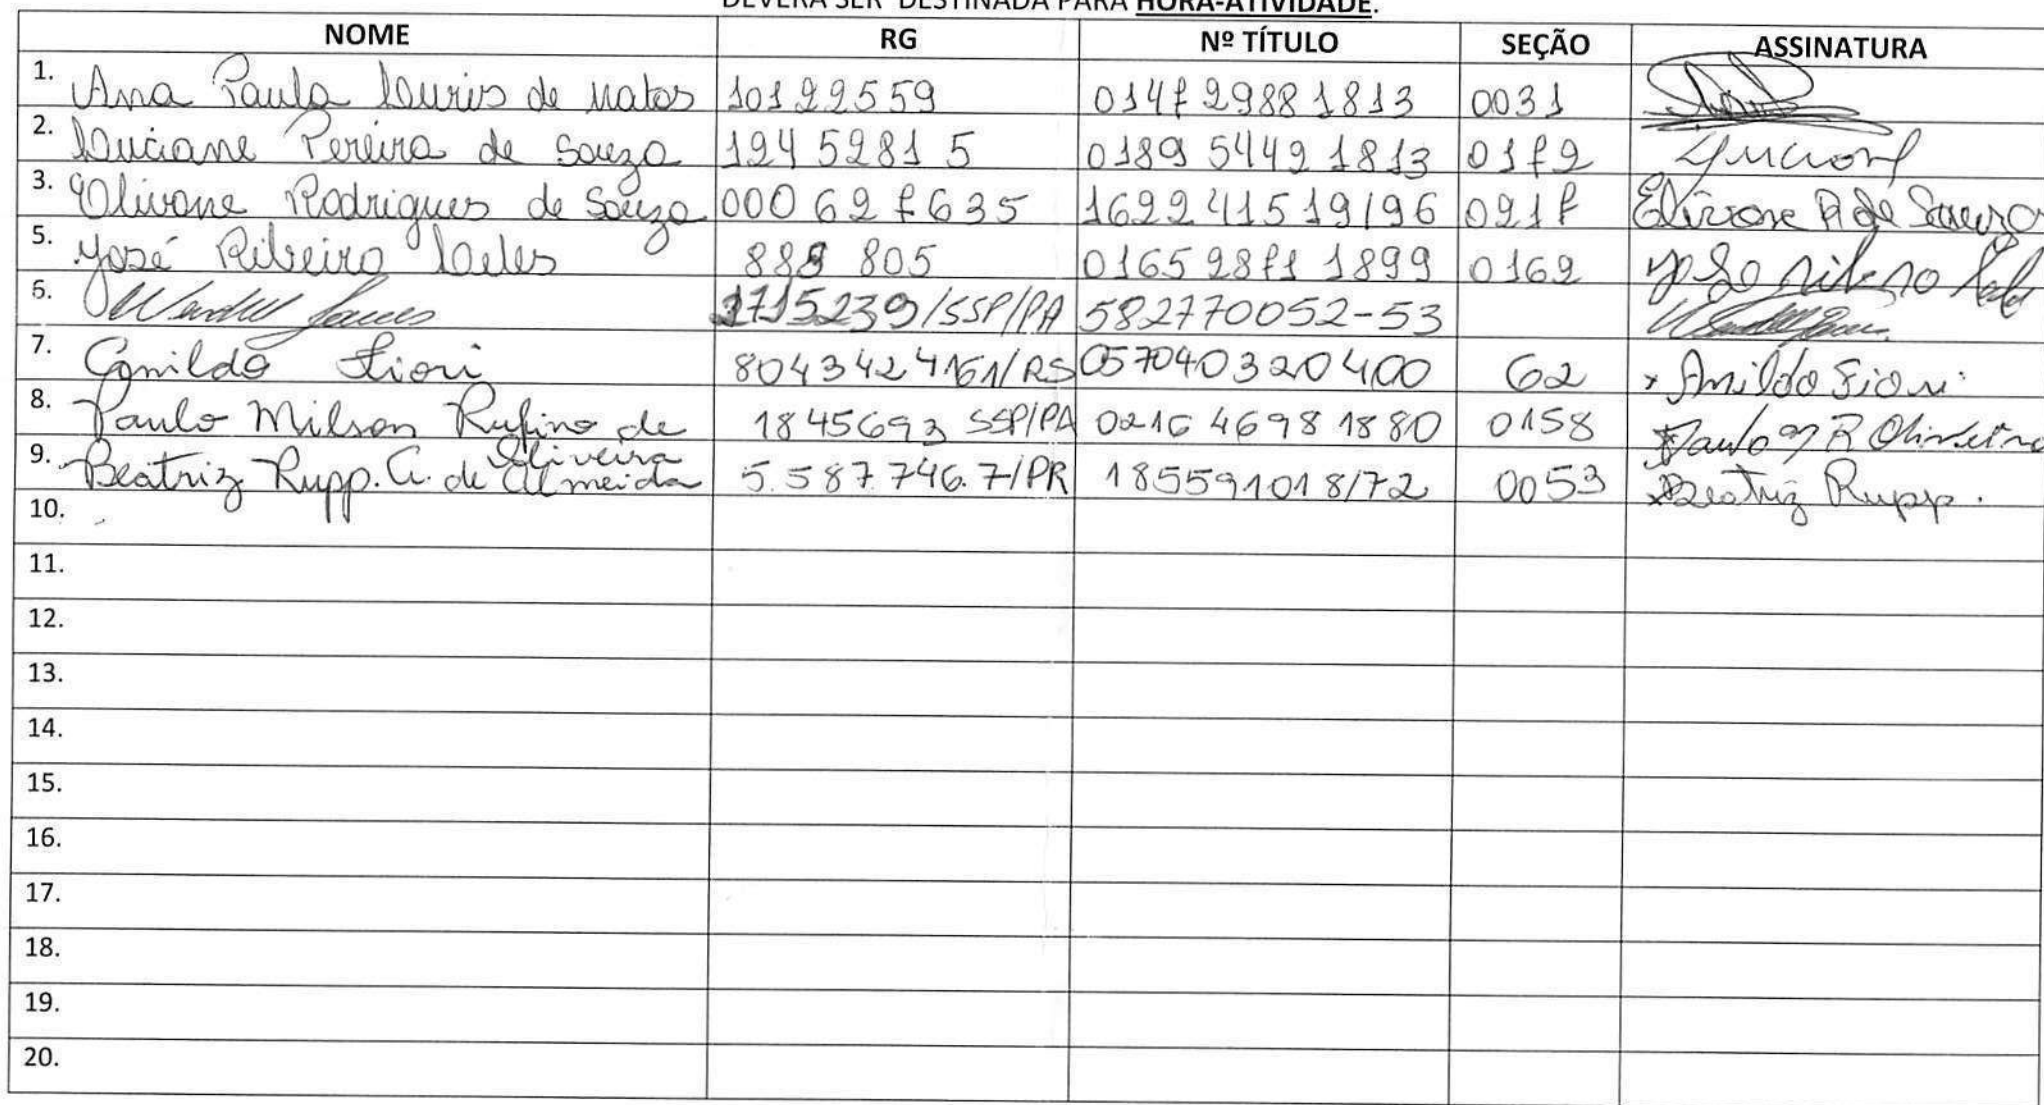 DEVERÁ SER DESTINADA PARA HORA-ATIVIDADE.
NOME RG Nº TÍTULO SEÇÃO ASSINATURA
1. Ana Paula de Matos 10122559 0147 2988 1813 0031
2. Luciane Pereira de Souza 12452815 0189 5442 1813 0172
3. Elivane Rodrigues de Souza 000627635 1622 4151 9/96 0217 Elivane R de Souza
5. José Ribeiro 0165 2871 1899 0162
6. 1715239/SSP/PA 582770052-53
7. Fiori 8043424161/RS 057040320400 62 x Anildo Fiori
8. Paulo Milson Rufino de 1845693 SSP/PA 0216 4698 1880 0158 Paulo M R Oliveira
Oliveira
9. Beatriz Rupp. A. de Almeida 5.587.746.7/PR 185591018/72 0053 Beatriz Rupp.
10.
11.
12.
13.
14.
15.
16.
17.
18.
19.
20.